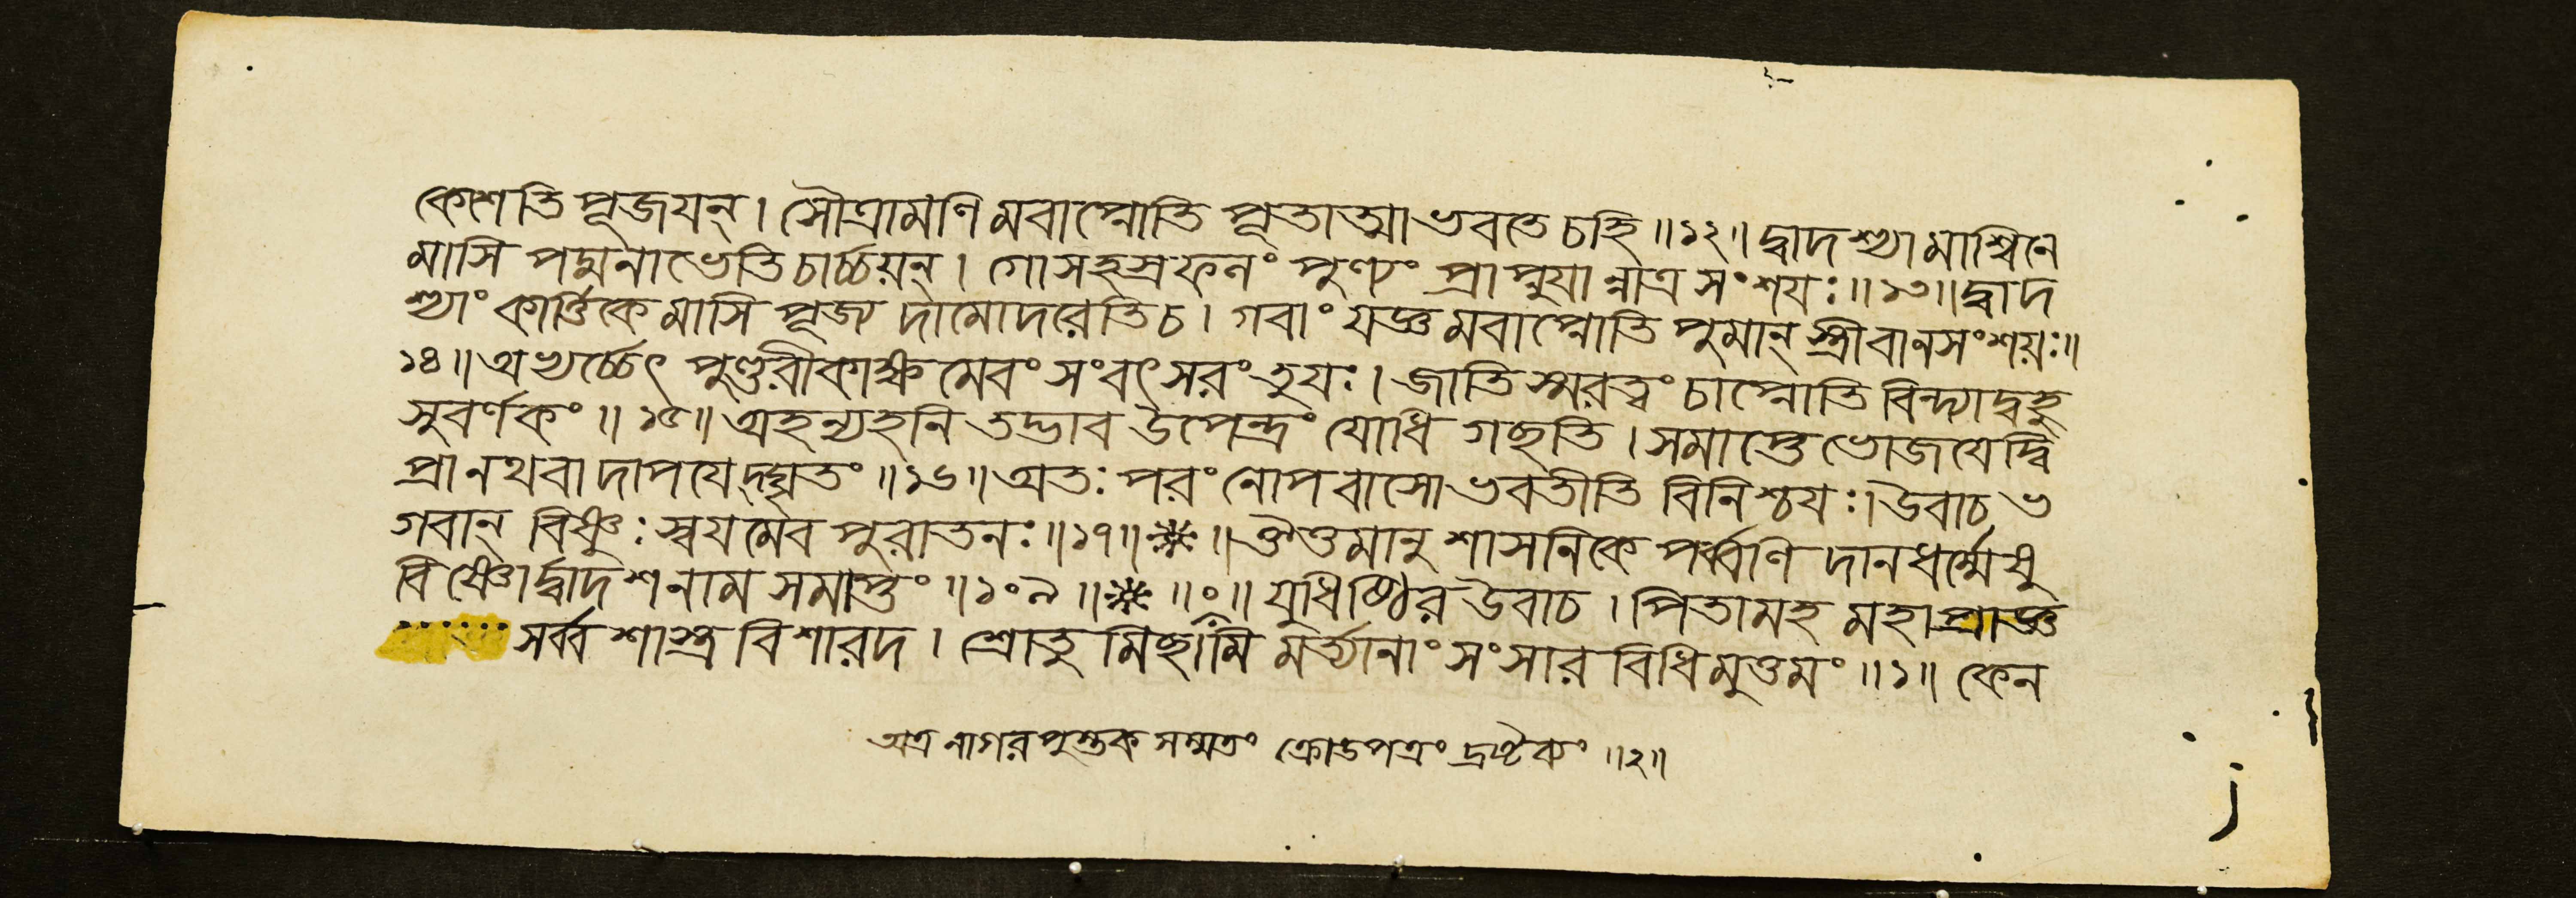 কেশেতি পূজযন্। সৌত্রামণিমবাপ্নোতি পূতাত্মা ভবতে চ হি॥১২॥ দ্বাদশ্যামাশ্বিনে
মাসি পদ্মনাভেতি চার্চ্চয়ন্। গোসহস্রফলং পুণ্যং প্রাপ্নুযান্নাত্র সংশযঃ॥১৩॥ দ্বাদ
শ্যাং কার্ত্তিকে মাসি পূজ্য দামোদরেতি চ। গবাং যজ্ঞমবাপ্নোতি পুমান্ স্ত্রীবানসংশয়ঃ॥
১৪॥ অভ্যর্চ্চেৎ পুণ্ডরীকাক্ষমেবং সংবৎসরং তু যঃ। জাতিস্মরত্বং চাপ্নোতি বিন্দ্যাদ্বহু
সুবর্ণকং॥১৫॥ অহন্যহনি তদ্ভাব উপেন্দ্রং যোধিগছতি। সমাপ্তে ভোজযেদ্বি
প্রানথবা দাপযেদ্ঘৃতং॥১৬॥ অতঃ পরং নোপবাসো ভবতীতি বিনিশ্চযঃ। উবাচ ভ
গবান্ বিষ্ণুঃ স্বযমেব পুরাতনঃ॥১৭॥※॥ ঔত্তমানুশাসনিকে পর্ব্বণি দানধর্ম্মেষু
বিষ্ণোর্দ্বাদশনাম সমাপ্তং॥১০৯॥※॥০॥ যুধিষ্ঠির উবাচ। পিতামহ মহাপ্রাজ্ঞ
সর্ব্বশাস্ত্রবিশারদ। শ্রোতুমিছামি মর্ত্ত্যানাং সংসারবিধিমুত্তমং॥১॥ কেন
অত্র নাগরপুস্তকসম্মতং ক্রোডপত্রং দ্রষ্টব্যং॥২॥